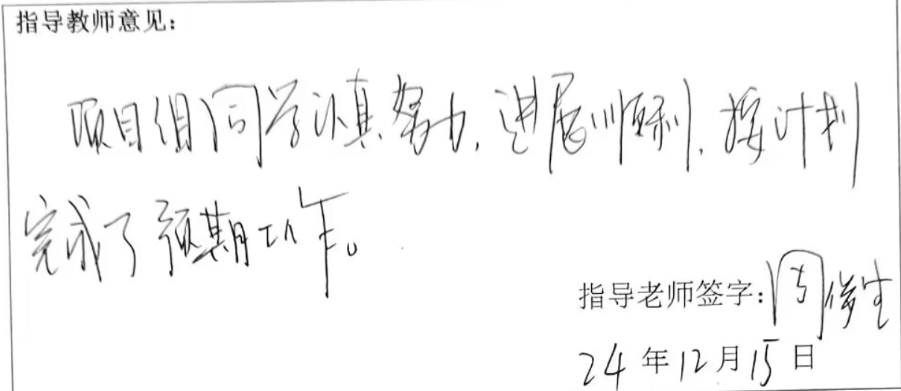 指导教师意见：
项目组同学认真努力，进展顺利，按计划
完成了预期工作。
指导老师签字：周俊生
24年12月15日